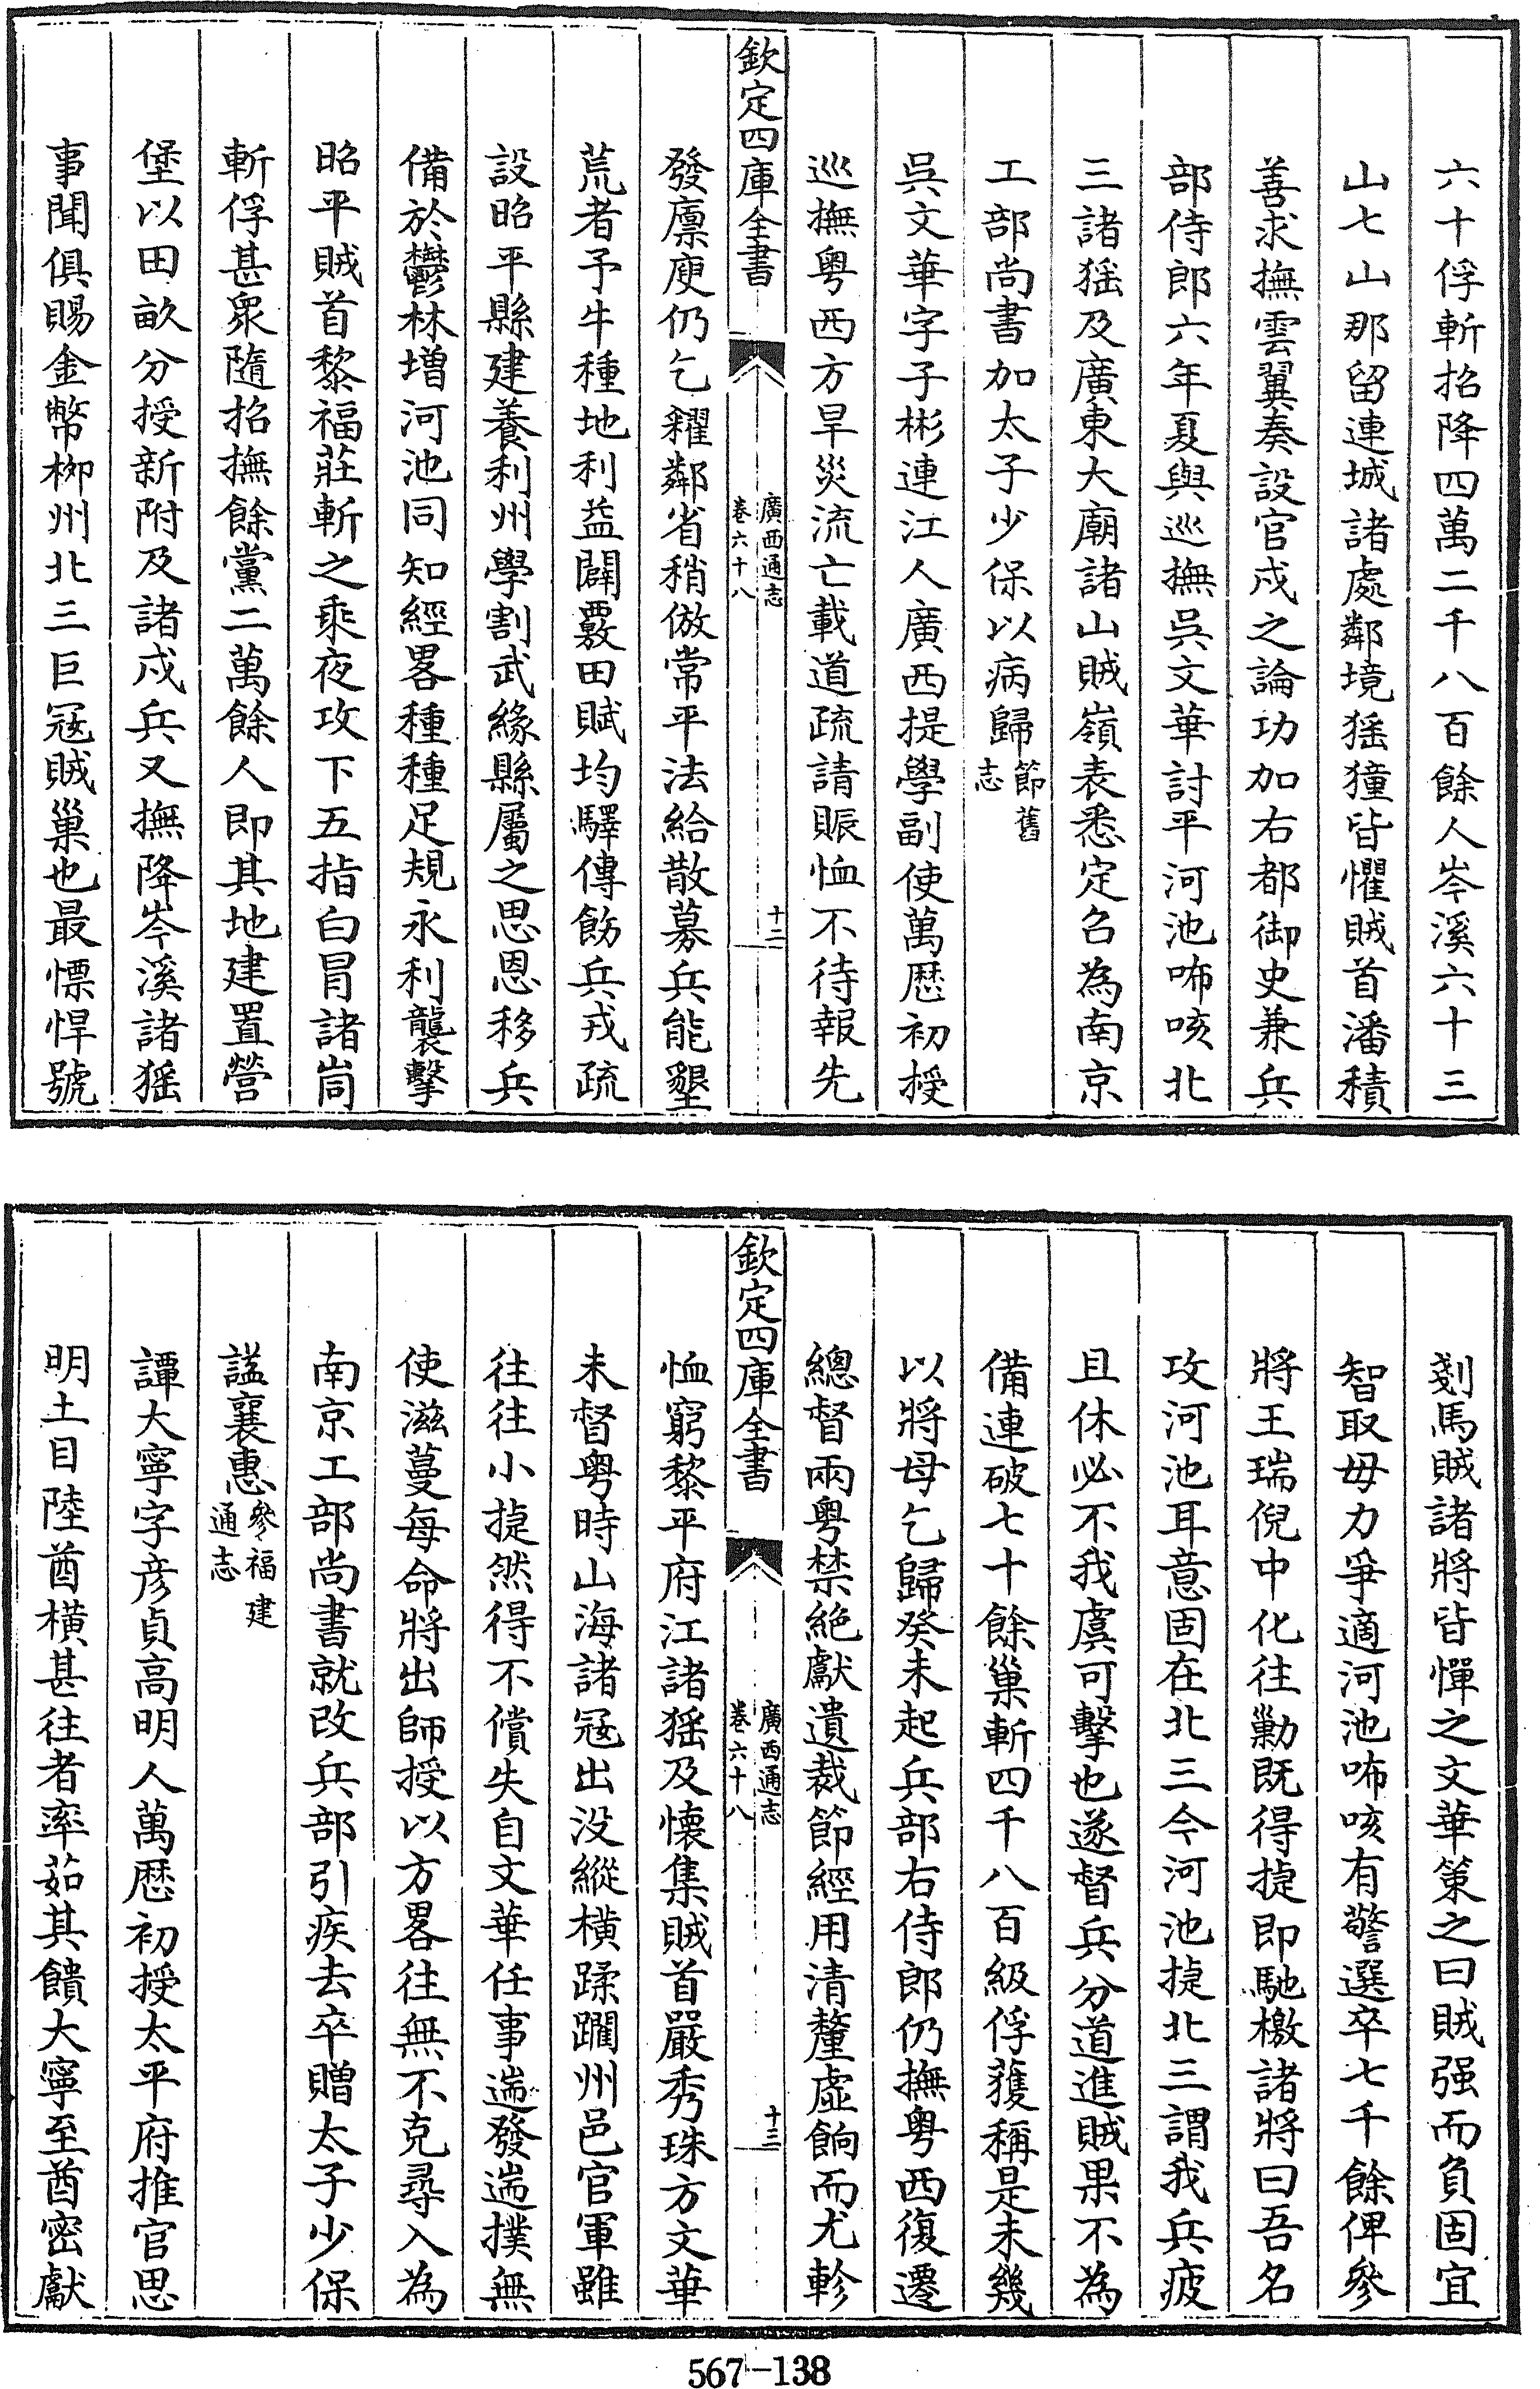 六十俘斬招降四萬二千八百餘人岑溪六十三
山七山那留連城諸處鄰境猺獞皆懼賊首潘積
善求撫雲翼奏設官戍之論功加右都御史兼兵
部侍郎六年夏與巡撫吳文華討平河池咘咳北
三諸猺及廣東大廟諸山賊嶺表悉定召為南京
工部尚書加太子少保以病歸節舊志
吳文華字子彬連江人廣西提學副使萬厯初授
巡撫粤西方旱災流亡載道疏請賑恤不待報先
欽定四庫全書
廣西通志
卷六十八
十二
發廪庾仍乞糴鄰省稍倣常平法給散募兵能墾
荒者予牛種地利益闢覈田賦均驛傳飭兵戎疏
設昭平縣建養利州學割武緣縣屬之思恩移兵
備於鬱林增河池同知經畧種種足規永利襲擊
昭平賊首黎福莊斬之乘夜攻下五指白冒諸峝
斬俘甚衆隨招撫餘黨二萬餘人即其地建置營
堡以田畝分授新附及諸戍兵又撫降岑溪諸猺
事聞俱賜金幣柳州北三巨冦賊巢也最慓悍號
剗馬賊諸將皆憚之文華策之曰賊强而負固宜
智取毋力爭適河池咘咳有警選卒七千餘俾參
將王瑞倪中化往勦既得捷即馳檄諸將曰吾名
攻河池耳意固在北三今河池捷北三謂我兵疲
且休必不我虞可擊也遂督兵分道進賊果不為
備連破七十餘巢斬四千八百級俘獲稱是未幾
以將母乞歸癸未起兵部右侍郎仍撫粤西復遷
總督兩粤禁絶獻遺裁節經用清釐虚餉而尤軫
欽定四庫全書
廣西通志
卷六十八
十三
恤窮黎平府江諸猺及懷集賊首嚴秀珠方文華
未督粤時山海諸冦出没縱橫蹂躙州邑官軍雖
往往小捷然得不償失自文華任事遄發遄撲無
使滋蔓每命將出師授以方畧往無不克尋入為
南京工部尚書就改兵部引疾去卒贈太子少保
諡襄惠參福建通志
譚大寧字彦貞高明人萬厯初授太平府推官思
明土目陸酋橫甚往者率茹其饋大寧至酋密獻
567-138